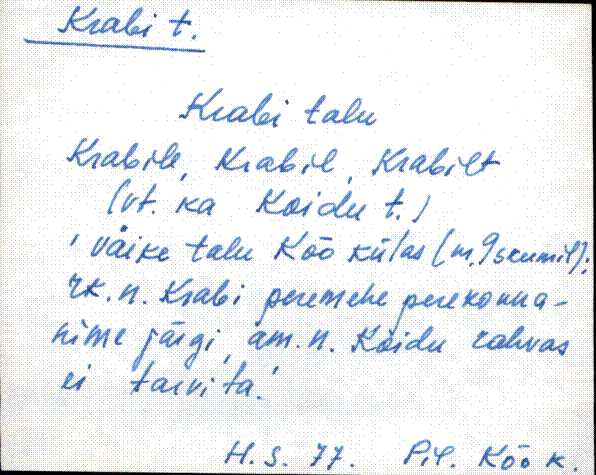 Krabi t.
Krabi talu
Krabile, Krabil, Krabilt
(vt. ka Koidu t.)
, väike talu Kõo külas (m.
rk. n. Krabi peremehe perekonna-
nime järgi, am. n. Koidu rahvas
ei tarvita.
H. S. 77. Pil. Kõo k.